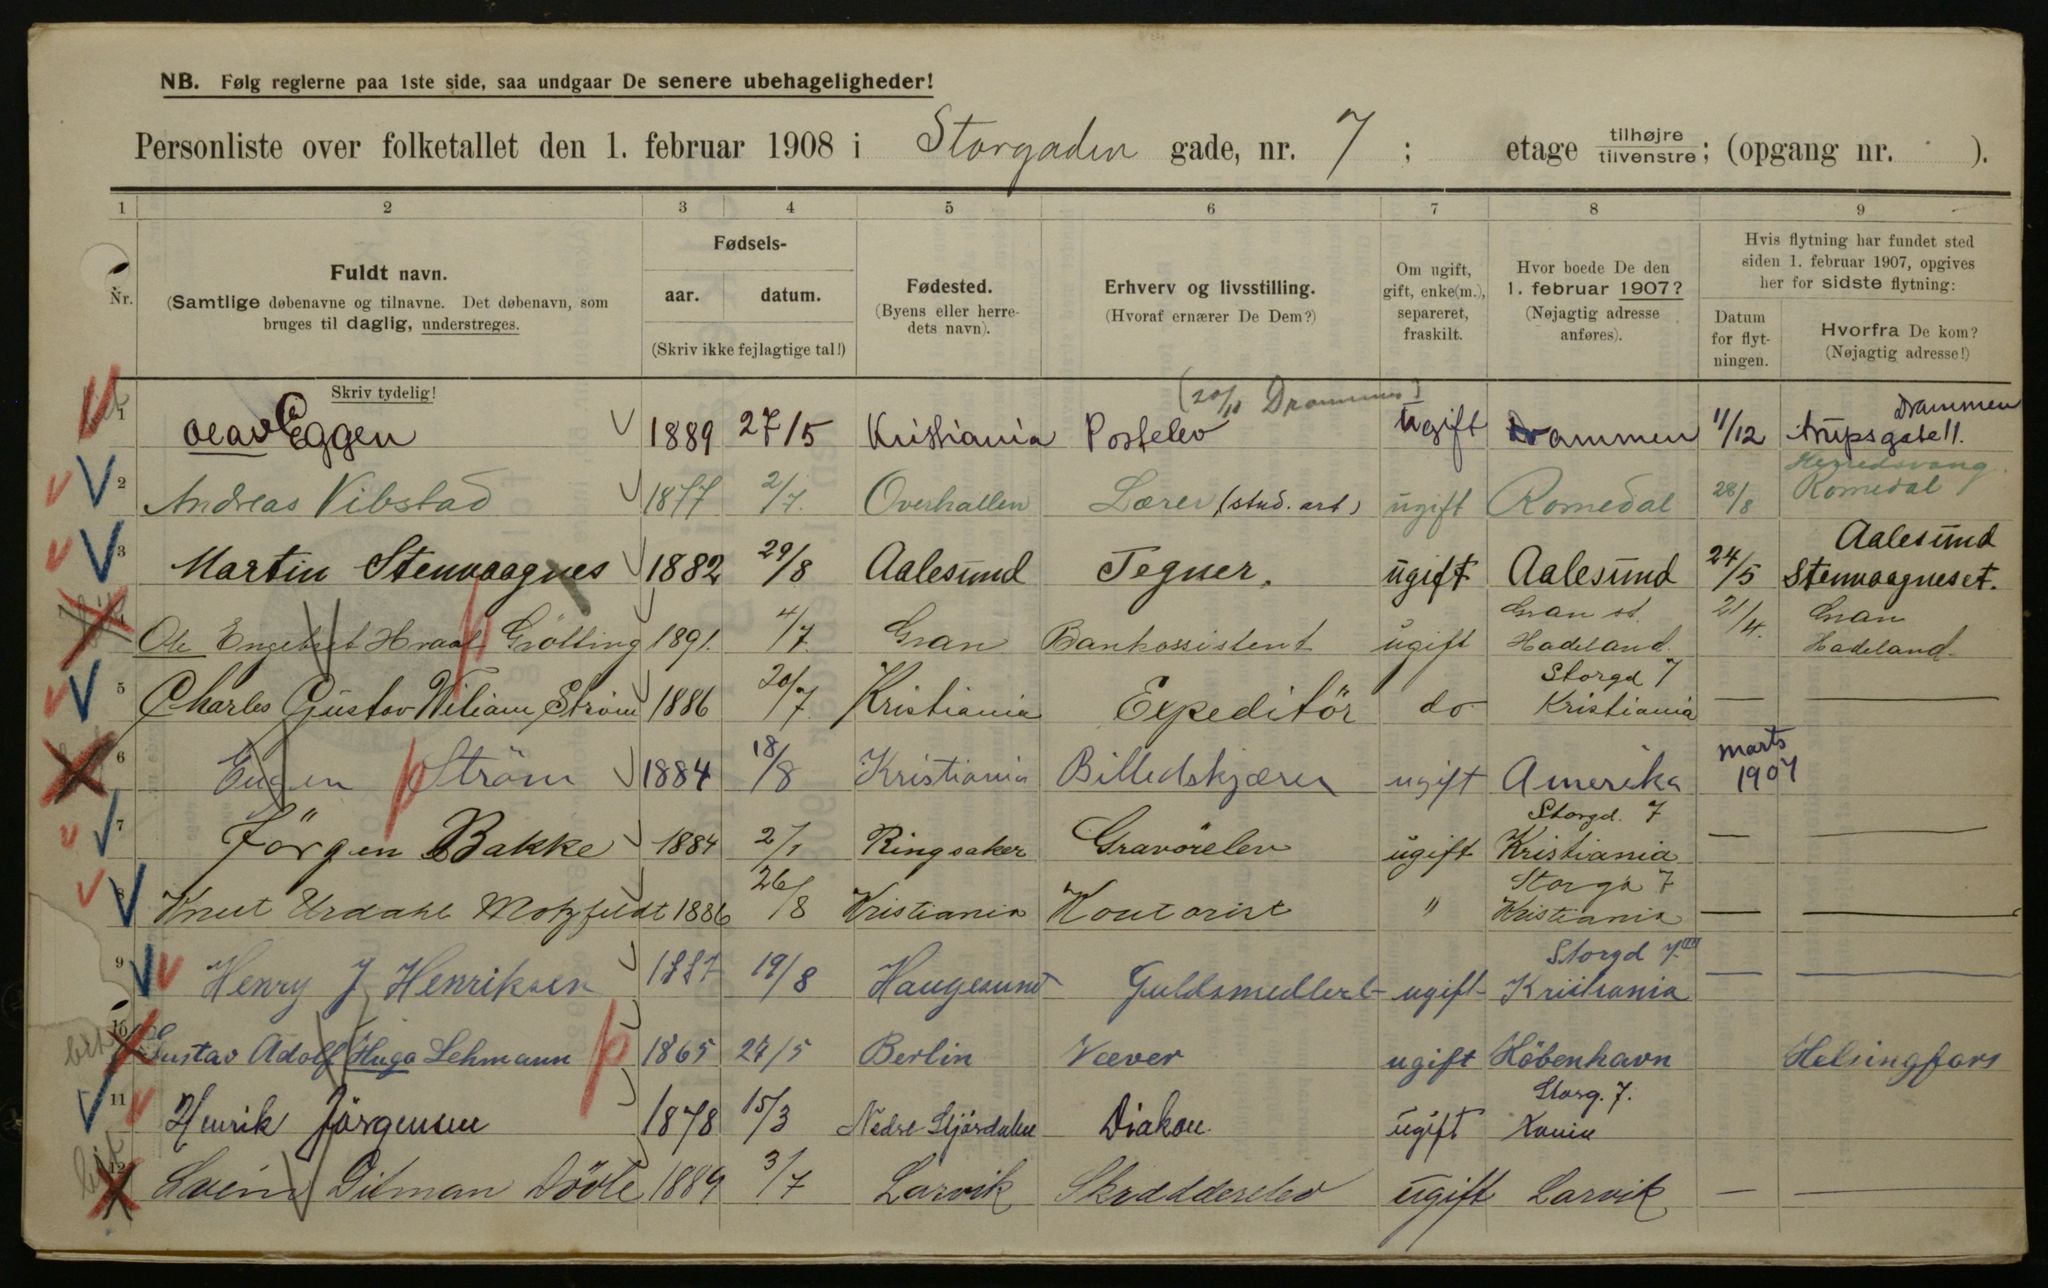 NB. Følg reglerne paa 1ste side, saa undgaar De senere ubehageligheder!
Personliste over folketallet den 1. februar 1908 i Storgaden gade, nr. 7 ; etage tilhøjre tilvenstre ; (opgang nr. ).
1 2 3 4 5 6 7 8 9
Nr.
Fuldt navn.
(Samtlige døbenavne og tilnavne. Det døbenavn, som
bruges til daglig, understreges.
Skriv tydelig!
Fødsels-
aar. datum.
(Skriv ikke fejlagtige tal!)
Fødested.
(Byens eller herre-
dets navn).
Erhverv og livsstilling.
(Hvoraf ernærer De Dem?)
Om ugift,
gift, enke(m.),
separeret,
fraskilt.
Hvor boede De den
1. februar 1907?
(Nøjagtig adresse
anføres).
Hvis flytning har fundet sted
siden 1. februar 1907, opgives
her for sidste flytning:
Datum
for flyt-
ningen.
Hvorfra De kom?
(Nøjagtig adresse!)
(20/11 Drammen)
Drammen
1 Olav Eggen 1889 27/5 Kristiania Postelev ugift Drammen 11/12 Arupsgate 11.
Herredsvang
2 Andreas Vibstad 1877 2/7. Overhallen Lærer (stud. art) ugift Romedal 28/8 Romedal
Aalesund
3 Martin Stenvaagnes 1882 29/8 Aalesund Tegner. ugift Aalesund 24/5 Stenvaagneset.
Gran st. Gran
Ole Engebret Hvaal Grötting 1891. 4/7. Gran Bankassistent ugift Hadeland. 21/4. Hadeland
Storgd 7
5 Charles Gustav Wiliam Ström 1886 20/7. Kristiania Expeditör do Kristiania — —
6 Eugen Ström 1884 18/8 Kristiania Billedskjærer ugift Amerika marts 1907
Storgd. 7
7 Jörgen Bakke 1884 2/1 Ringsaker Gravörelev ugift Kristiania — —
Storgd 7
8 Knut Urdahl Motzfeldt 1886 26/8 Kristiania Kontorist " Kristiania — —
Storgd 7.
9 Henry J Henriksen 1887 19/8 Haugesund Guldsmedlerl- ugift- Kristiania — —
10 Gustav Adolf Hugo Lehmann 1865 27/5 Berlin Væver ugift Höbenhavn Helsingfors
Storg. 7.
11 Henrik Jörgensen 1878 15/3 Nedre Stjördalen Diakon. ugift Xania
12 Gilman 1889 3/7 Larvik Skrædderelev ugift Larvik — —